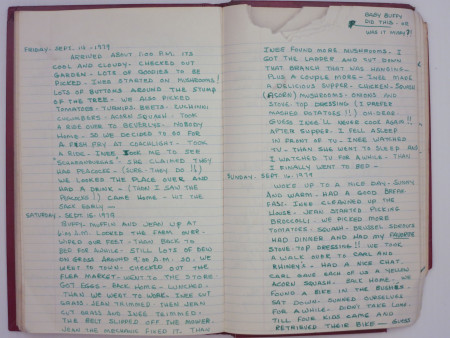 FRIDAY - SEPT. 14 - 1979
ARRIVED ABOUT 1:00 P.M. ITS
COOL AND CLOUDY - CHECKED OUT
GARDEN - LOTS OF GOODIES TO BE
PICKED - INEE STARTED ON MUSHROOMS!
LOTS OF BUTTONS AROUND THE STUMP
OF THE TREE - WE ALSO PICKED
TOMATOES - TURNIPS, BEETS - ZUCHINNI,
CUCUMBERS - ACORN SQUASH - TOOK
A RIDE OVER TO BEVERLYS - NOBODY
HOME - SO WE DECIDED TO GO FOR
A FISH FRY AT COACHLIGHT - TOOK
A RIDE - INEE TOOK ME TO SEE
SHE CLAIMED THEY
HAD PEACOCKS - (SURE, THEY DO!!)
WE LOOKED THE PLACE OVER AND
HAD A DRINK - (THEN I SAW THE
PEACOCK!!) CAME HOME - HIT THE
SACK EARLY -
SATURDAY - SEPT. 15 - 1979
BUFFY, MUFFIN AND JEAN UP AT
6:00 A.M. LOOKED THE FARM OVER -
WIPED OUR FEET - THEN BACK TO
BED FOR AWHILE - STILL LOTS OF DEW
ON GRASS AROUND 9:00 A.M. SO, WE
WENT TO TOWN - CHECKED OUT THE
FLEA MARKET - WENT TO THE STORE
GOT EGGS - BACK HOME - LUNCHED -
THAN WE WENT TO WORK - INEE CUT
GRASS JEAN TRIMMED, THEN JEAN
CUT GRASS AND INEE TRIMMED.
THE BELT SLIPPED OFF THE MOWER -
JEAN THE MECHANIC FIXED IT. THAN
BABY BUFFY
DID THIS - OR
WAS IT MARY?!
INEE FOUND MORE MUSHROOMS. I
GOT THE LADDER AND CUT DOWN
THAT BRANCH THAT WAS HANGING
PLUS A COUPLE MORE - INEE MAKE
A DELICIOUS SUPPER - CHICKEN - SQUASH
(ACORN) MUSHROOMS - ONIONS AND
STOVE-TOP DRESSING (I PREFER
MASHED POTATOES!!) OH-DEAR -
GUESS INEE'LL NEVER COOK AGAIN!!
AFTER SUPPER, I FELL ASLEEP
IN FRONT OF TV - INEE WATCHED
TV - THAN SHE WENT TO SLEEP AND
I WATCHED TV FOR AWHILE - THAN
I FINALLY WENT TO BED -
SUNDAY - SEPT. 16 - 1979
WOKE UP TO A NICE DAY - SUNNY
AND WARM - HAD A GOOD BREAK
FAST. INEE CLEANED UP THE
HOUSE - JEAN STARTED PICKING
BROCCOLI - WE PICKED MORE
TOMATOES - SQUASH - BRUSSEL SPROUTS
HAD DINNER AND HAD MY FAVORITE
STOVE-TOP DRESSING!! WE TOOK
A WALK OVER TO CARL AND
HAD A NICE CHAT -
CARL GAVE EACH OF US A YELLOW
ACORN SQUASH. BACK HOME - WE
FOUND A BIKE IN THE BUSHES -
SAT DOWN - SUNNED OURSELVES
FOR AWHILE - DIDN'T TAKE LONG
TILL FOUR KIDS CAME AND
RETRIEVED THEIR BIKE - GUESS